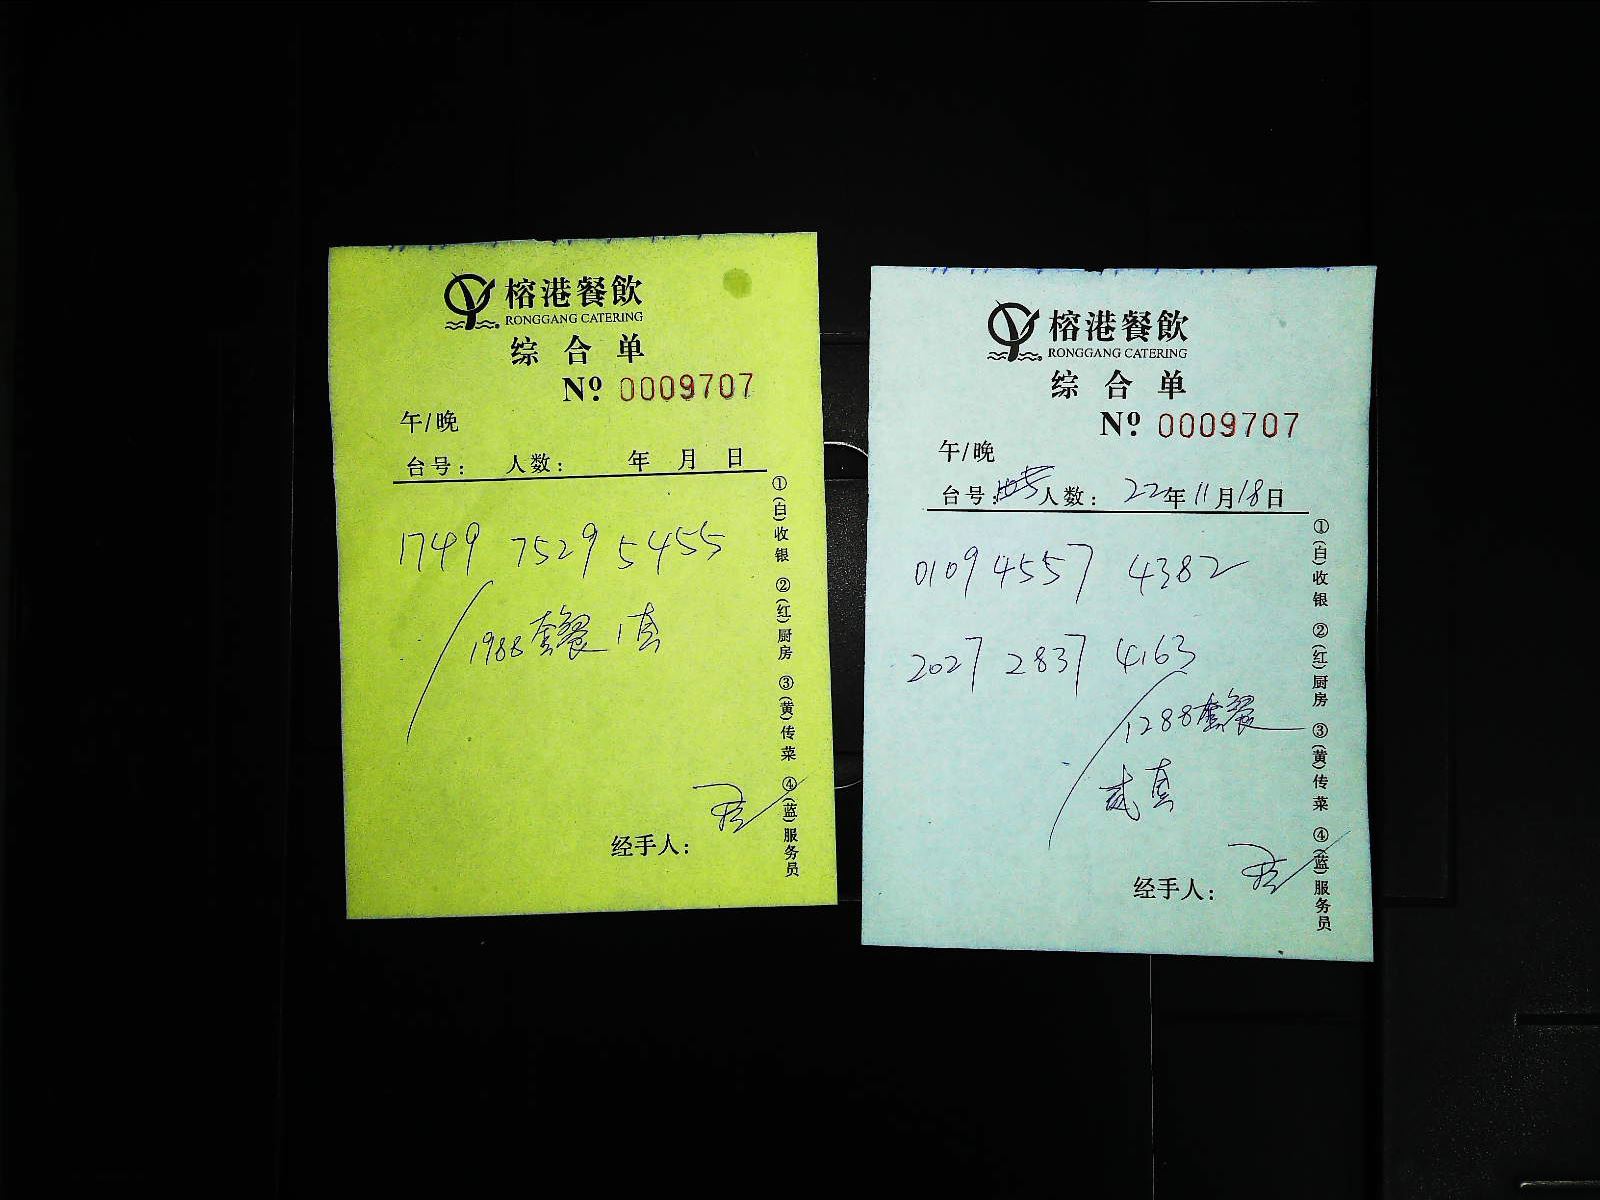 榕港餐飲
RONGGANG CATERING
综合单
Nº 0009707
午/晚
台号： 人数： 年 月 日
1749 7529 5455
1988套餐 1真
经手人：
①(白)收银 ②(红)厨房 ③(黄)传菜 ④(蓝)服务员
榕港餐飲
RONGGANG CATERING
综合单
Nº 0009707
午/晚
台号： 人数： 22年11月18日
0109 4557 4382
2027 2837 4163
1288套餐
贰真
经手人：
①(白)收银 ②(红)厨房 ③(黄)传菜 ④(蓝)服务员